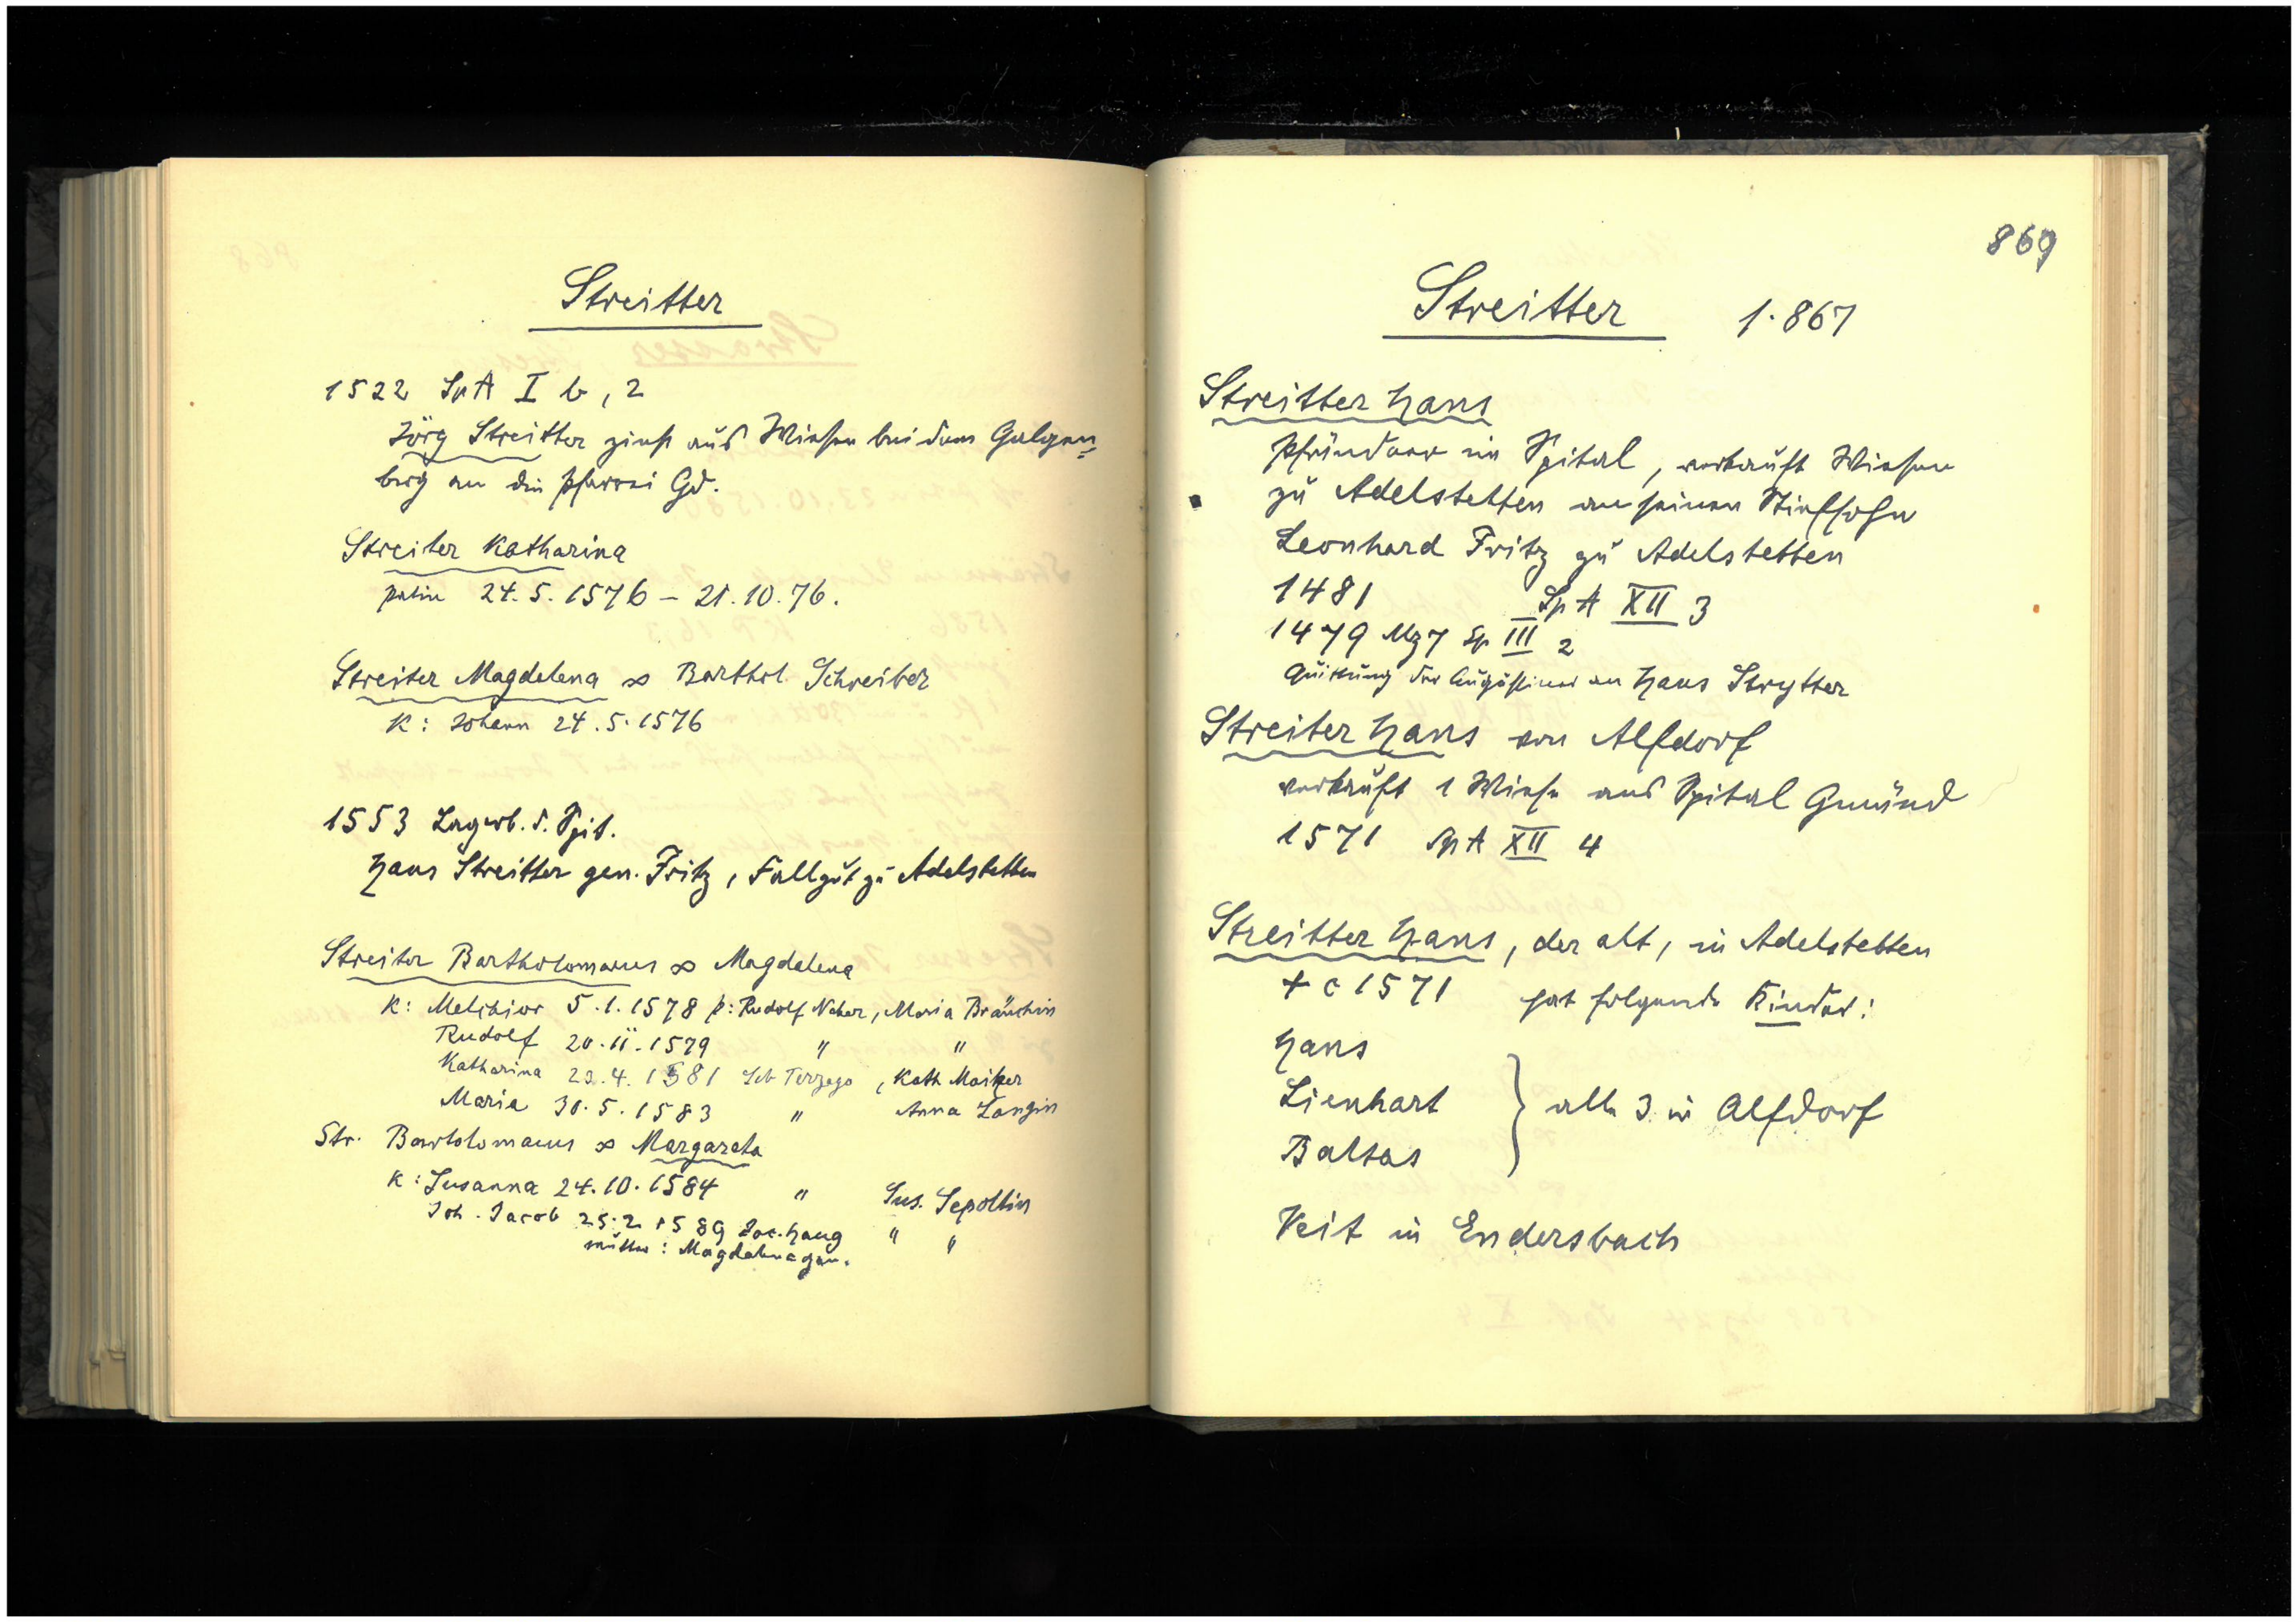 Streitter
1522 SpA I b, 2
Jörg Streitter zinst aus Wiesen bei dem Galgen=
berg an die Pfarrei Gd.
Streiter Katharina
patin 24.5.1576 – 21.10.76.
Streiter Magdalena ∞ Barthol. Schreiber
K: Johann 24.5.1576
1553 Lagerb. d. Spit.
Hans Streitter gen. Fritz, Fallgut zu Adelstetten
Streiter Bartholomaeus ∞ Magdalena
K: Melchior 5.1.1578 p: Rudolf Neher, Maria Bräuchin
Rudolf 20.11.1579 " "
Katharina 23.4.1581 Seb Terzago, Kath Maiher
Maria 30.5.1583 " Anna Langin
Str. Bartolomaeus ∞ Margareta
K: Susanna 24.10.1584 " Sus. Sepoltin
Joh. Jacob 25.2.1589 Jac. Haug " "
Mutter: Magdalena gen.
869
Streitter 1.867
Streitter Hans
Pfründner im Spital, verkauft Wiesen
zu Adelstetten an seinen Stiefsohn
Leonhard Fritz zu Adelstetten
1481 SpA XII 3
1479 Mz 7 Sp III 2
Quittung der Augustiner an Hans Strytter
Streiter Hans von Alfdorf
verkauft 1 Wiese ans Spital Gmünd
1571 SpA XII 4
Streitter Hans, der alt, in Adelstetten
+ c 1571 hat folgende Kinder:
Hans
Lienhart } alle 3 in Alfdorf
Baltas
Veit in Endersbach